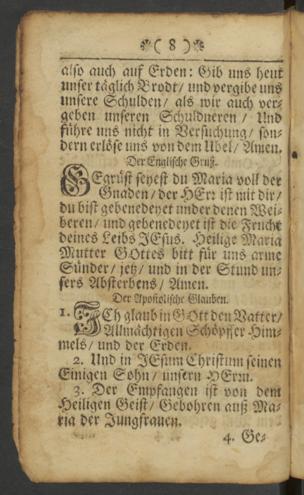 ( 8 )
also auch auf Erden: Gib uns heut
unser täglich Brodt/ und vergibe uns
unsere Schulden/ als wir auch ver-
geben unseren Schuldneren/ Und
führe uns nicht in Versuchung/ son-
dern erlöse uns von dem Ubel/ Amen.
Der Englische Gruß.
GEgrüst seyest du Maria voll der
Gnaden/ der HErr ist mit dir/
du bist gebenedeyet under denen Wei-
beren/ und gebenedeyet ist die Frucht
deines Leibs JEsus. Heilige Maria
Mutter GOttes bitt für uns arme
Sünder/ jetz/ und in der Stund un-
sers Absterbens/ Amen.
Der Apostolische Glauben.
1. JCh glaub in GOtt den Vatter/
Allmächtigen Schöpffer Him-
mels/ und der Erden.
2. Und in JEsum Christum seinen
Einigen Sohn/ unsern HErrn.
3. Der Empfangen ist von dem
Heiligen Geist/ Gebohren auß Ma-
ria der Jungfrauen.
4. Ge-